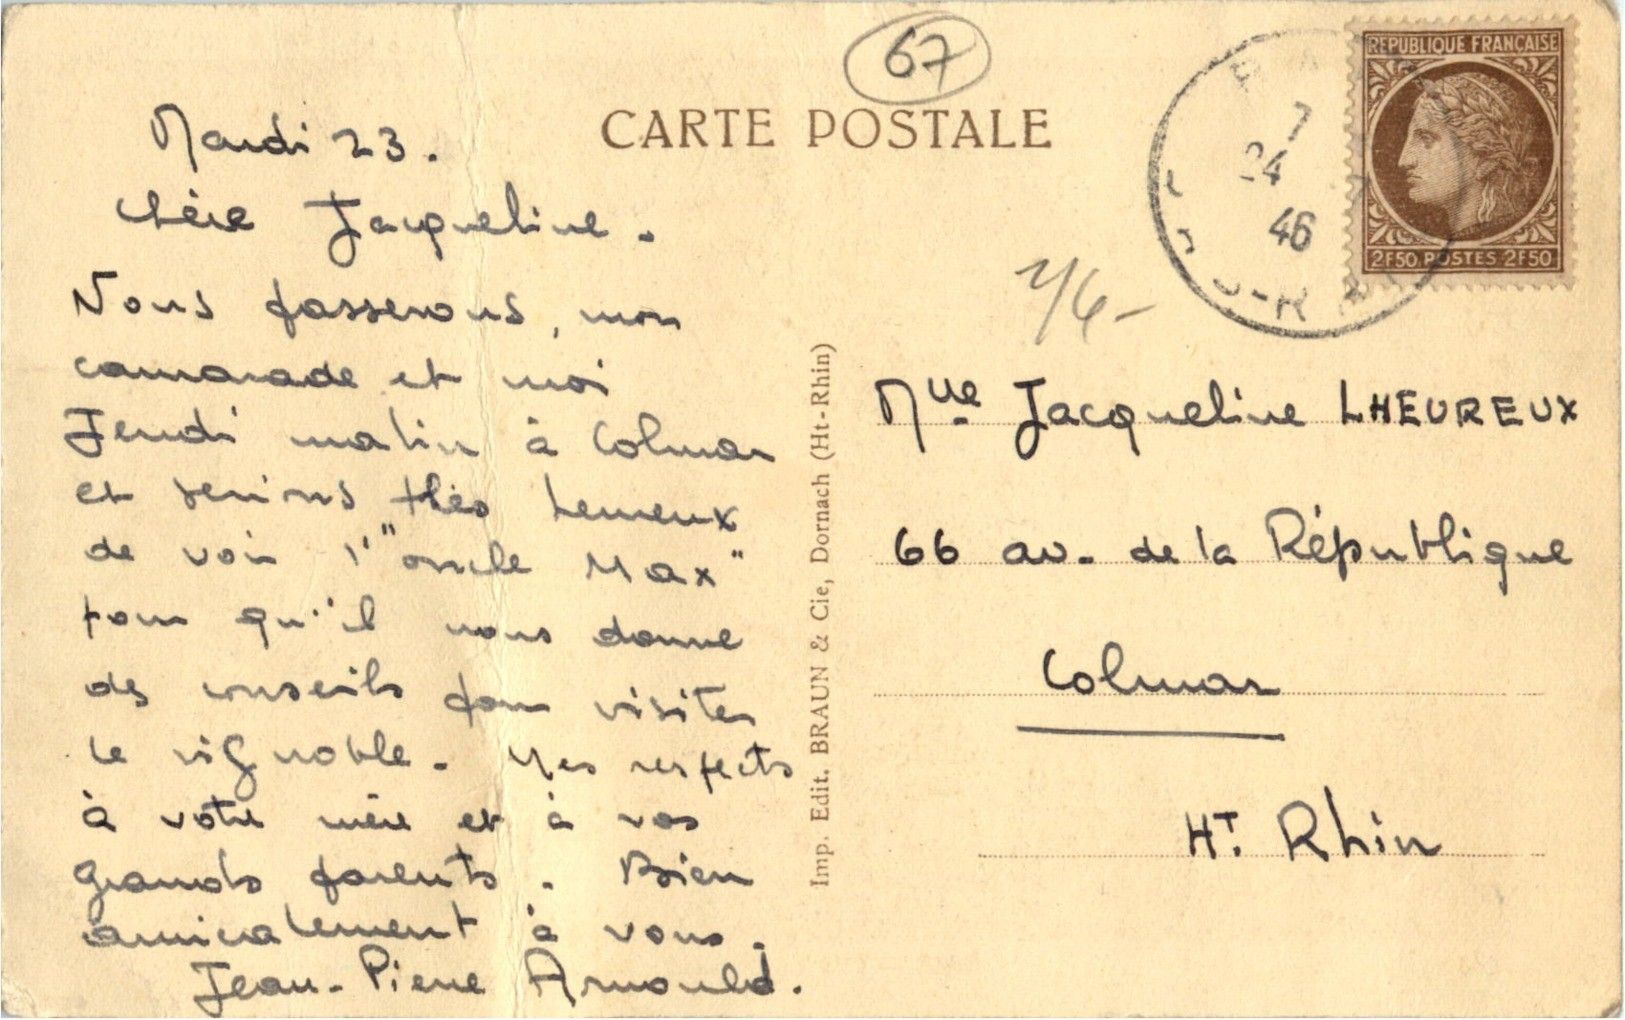 67
CARTE POSTALE
Mardi 23.
Chère Jacqueline.
Nous passerons, mon
camarade et moi
Jeudi matin à Colmar
et serions très heureux
de voir l'"oncle Max"
pour qu'il nous donne
des conseils pour visiter
le vignoble. Mes respects
à votre mère et à vos
grands parents. Bien
amicalement à vous.
Jean-Pierre Arnould.
Imp. Edit. BRAUN & Cie, Dornach (Ht-Rhin)
REPUBLIQUE FRANÇAISE
2F50 POSTES 2F50
7
24
46
Mlle Jacqueline LHEUREUX
66 av. de la République
Colmar
HT. Rhin